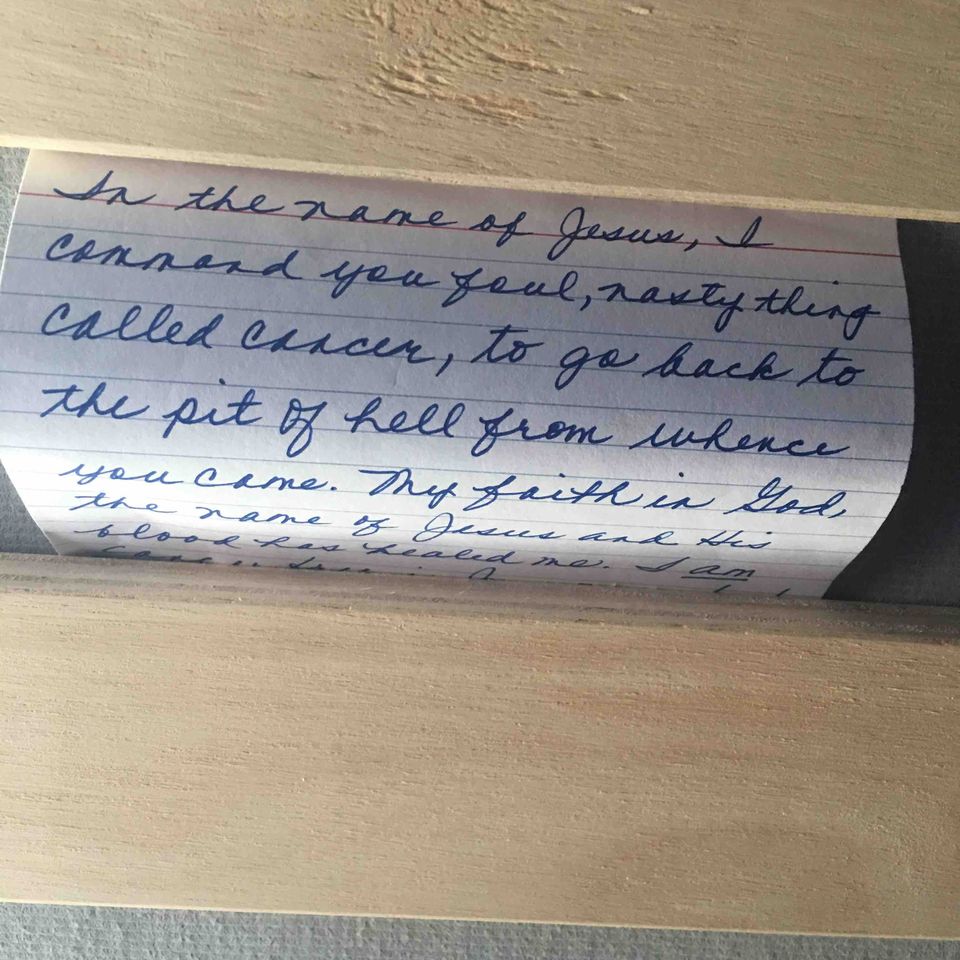 In the name of Jesus, I
command you foul, nasty thing
called cancer, to go back to
the pit of hell from whence
you came. My faith in God,
the name of Jesus and His
blood has healed me. I am